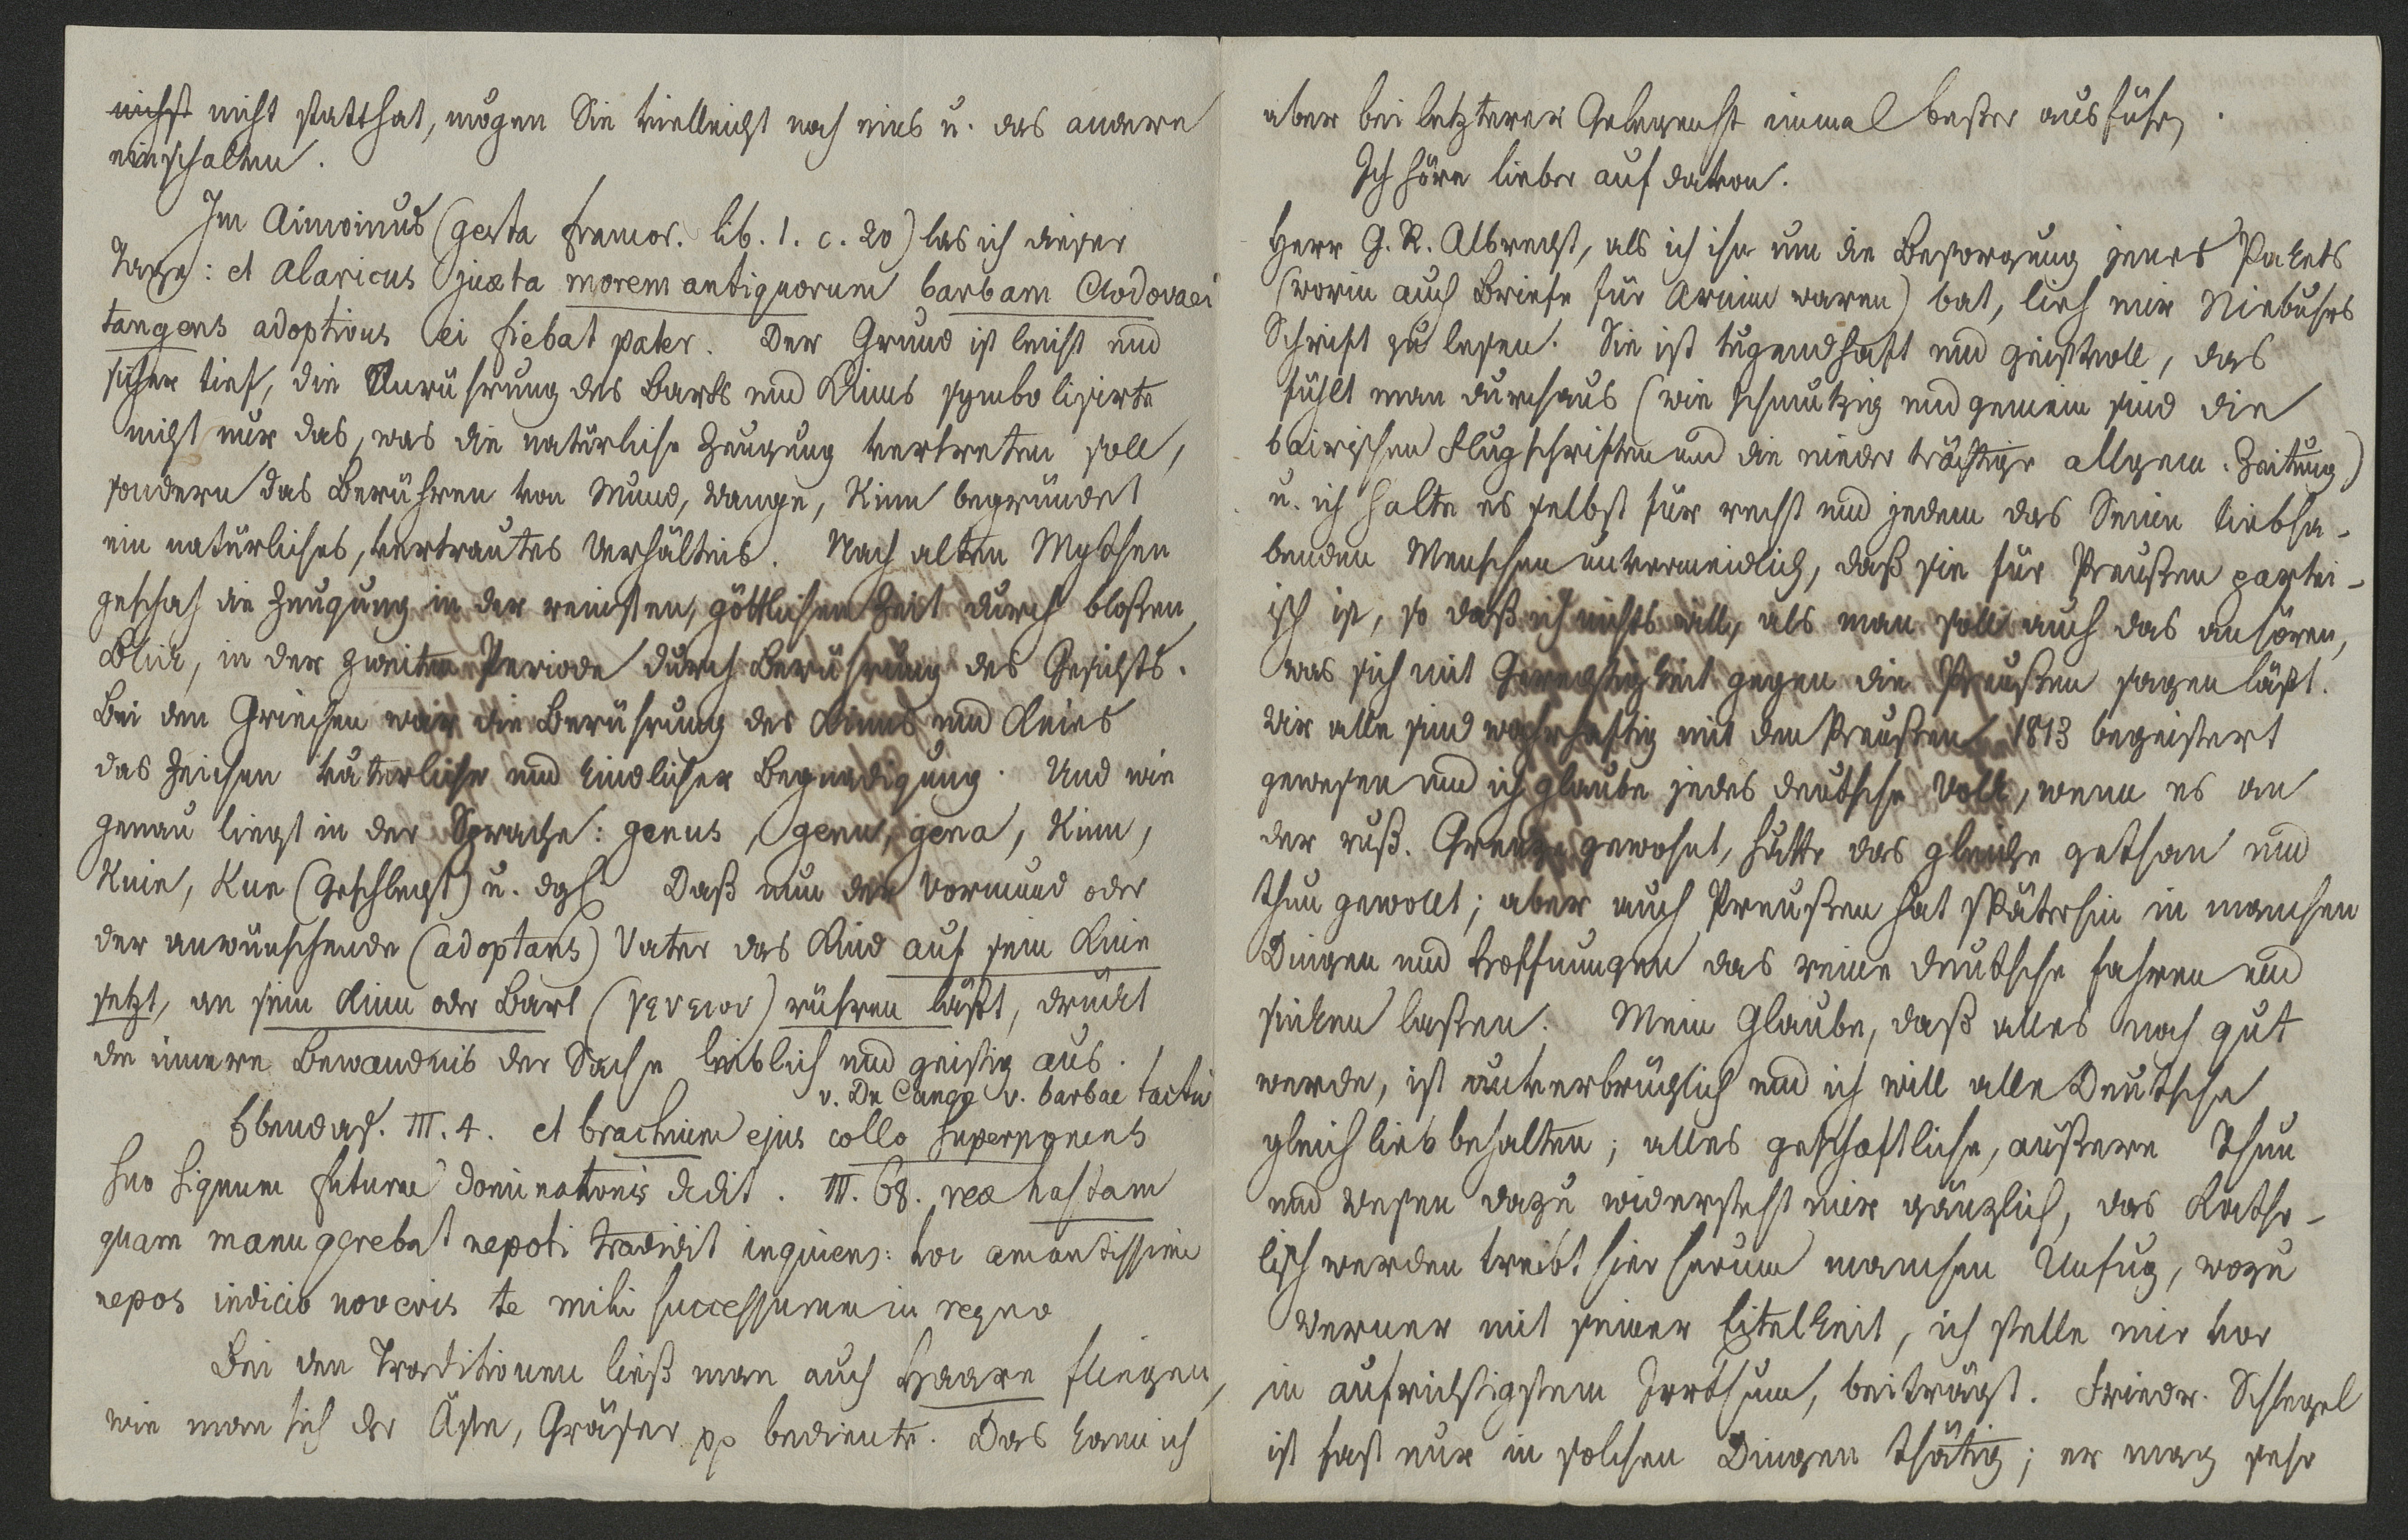 nicht nicht statthat, mögen Sie vielleicht noch eins u. das andere
einschalten.
Im Aimoinus (gesta francor. lib. 1. c. 20) las ich dieser
Tage: et Alaricus juxta morem antiquorum barbam Clodovaei
tangens adoptivus ei fiebat pater. Der Grund ist leicht und
sicher tief, die Anrührung des Barts und Kinns symbolisirte
nicht nur das, was die natürliche Zeugung vertreten soll,
sondern das Berühren von Mund, Wange, Kinn begründet
ein natürliches, vertrautes Verhältnis. Nach alten Mythen
geschah die Zeugung in der reinsten, göttlichen Zeit durch bloßen
Blick, in der zweiten Periode durch Berührung des Gesichts.
Bei den Griechen war die Berührung des Kinns und Knies
das Zeichen väterlicher und kindlicher Begnadigung. Und wie
genau liegt in der Sprache: genus, genu, gena, Kinn,
Knie, Kne (Geschlecht) u. dgl. Daß nun der Vormund oder
der anwünschende (adoptans) Vater das Kind auf sein Knie
setzt, an sein Kinn oder Bart (γενειον) rühren läßt, drückt
die innere Bewandnis der Sache leiblich und geistig aus.
v. Du Cange v. barbae tactu
Ebendas. III. 4. et brachium ejus collo superponens
suo signum futurae dominationis dedit. III. 68. rex hastam
quam manu gerebat nepoti tradidit inquiens: hoc amantissime
nepos indicio noveris te mihi successurum in regno
Bei den Traditionen ließ man auch Haare fliegen,
wie man sich der Äste, Gräser pp bediente. Das kann ich
aber bei letzterer Gelegenht einmal beßer ausführ.
Ich höre lieber auf davon.
Herr G. R. Albrecht, als ich ihn um die Besorgung jenes Pakets
(worin auch Briefe für Arnim waren) bat, lieh mir Niebuhrs
Schrift zu lesen. Sie ist tugendhaft und geistvoll, das
fühlt man durchaus (wie schmutzig und gemein sind die
bairischen Flugschriften und die niederträchtige allgem. Zeitung)
u. ich halte es selbst für recht und jedem das Seine liebha-
benden Menschen unvermeidlich, daß sie für Preußen partei-
isch ist, so daß ich nichts will, als man soll auch das anhören,
was sich mit Gerechtigkeit gegen die Preußen sagen läßt.
Wir alle sind wahrhaftig mit den Preußen 1813 begeistert
gewesen und ich glaube jedes deutsche Volk, wenn es an
der ruß. Grenze gewohnt, hätte das gleiche gethan und
thun gewollt; aber auch Preußen hat späterhin in manchen
Dingen und Hoffnungen das reine deutsche fahren und
sinken laßen. Mein Glaube, daß alles noch gut
werde, ist unverbrüchlich und ich will alle Deutsche
gleich lieb behalten; alles geschäftliche, äußere Thun
und Wesen dazu widersteht mir gänzlich, das Katho-
lisch werden treibt hier herum manchen Unfug, wozu
Werner mit seiner Eitelkeit, ich stelle mir vor
in aufrichtigstem Irrthum, beiträgt. Friedr. Schlegel
ist fast nur in solchen Dingen thätig; er mag sehr